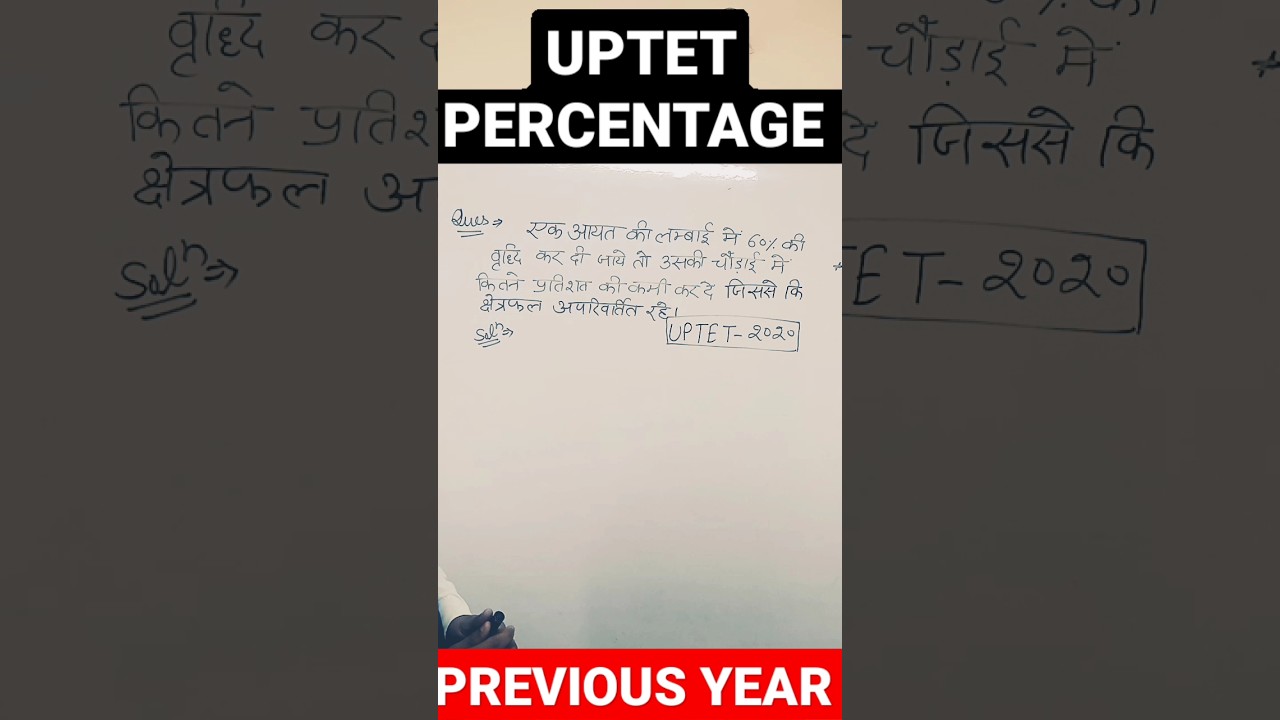 UPTET
PERCENTAGE
Ques ⇒ एक आयत की लम्बाई में 60% की
वृद्धि कर दी जाये तो उसकी चौड़ाई में
कितने प्रतिशत की कमी कर दे जिससे कि
क्षेत्रफल अपरिवर्तित रहे।
UPTET-२०२०
Solⁿ ⇒
PREVIOUS YEAR